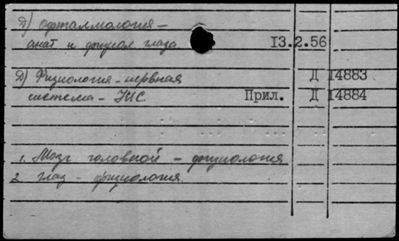 Д) офталмология -
анат и физиол глаза. 13.2.56
Д) Физиология - нервная Д 14883
система - УНС Прил. Д 14884
1. Мозг головной - физиология
2. глаз - физиология.